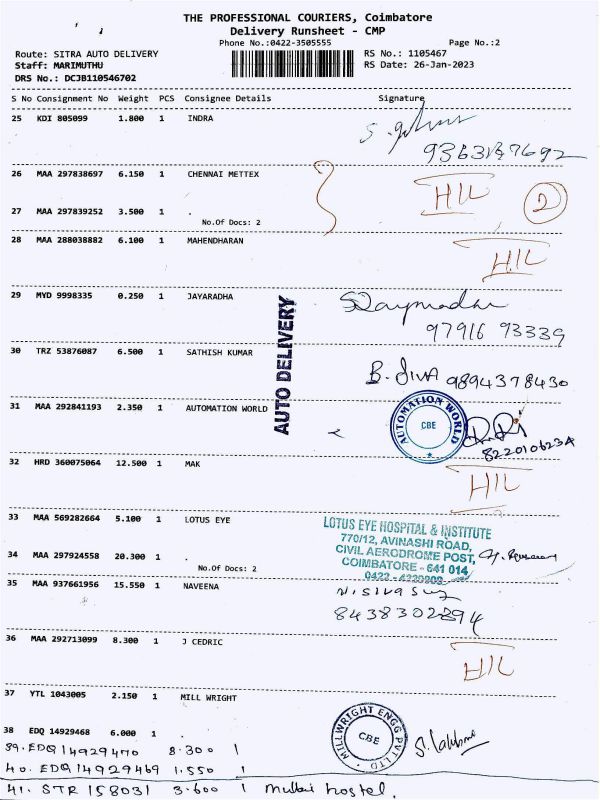 THE PROFESSIONAL COURIERS, Coimbatore
Delivery Runsheet - CMP
Phone No.:0422-3505555 Page No.:2
Route: SITRA AUTO DELIVERY RS No.: 1105467
Staff: MARIMUTHU RS Date: 26-Jan-2023
DRS No.: DCJB110546702
S No Consignment No Weight PCS Consignee Details Signature
25 KDI 805099 1.800 1 INDRA
9363187692
26 MAA 297838697 6.150 1 CHENNAI METTEX HIL 2
27 MAA 297839252 3.500 1 .
No.Of Docs: 2
28 MAA 288038882 6.100 1 MAHENDHARAN HIL
29 MYD 9998335 0.250 1 JAYARADHA
97916 93339
AUTO DELIVERY
30 TRZ 53876087 6.500 1 SATHISH KUMAR B. SIVA 9894378430
31 MAA 292841193 2.350 1 AUTOMATION WORLD
AUTOMATION WORLD CBE
32 HRD 360075064 12.500 1 MAK HIL
33 MAA 569282664 5.100 1 LOTUS EYE
LOTUS EYE HOSPITAL & INSTITUTE
770/12, AVINASHI ROAD,
CIVIL AERODROME POST,
COIMBATORE - 641 014
34 MAA 297924558 20.300 1 .
No.Of Docs: 2
35 MAA 937661956 15.550 1 NAVEENA
8438302894
36 MAA 292713099 8.300 1 J CEDRIC HIL
37 YTL 1043005 2.150 1 MILL WRIGHT
MILLWRIGHT ENGG PVT LTD CBE
38 EDQ 14929468 6.000 1 .
39. EDQ 14929470 8.300 1
40. EDQ 14929469 1.550 1
41. STR 158031 3.600 1 Mullai hostel.